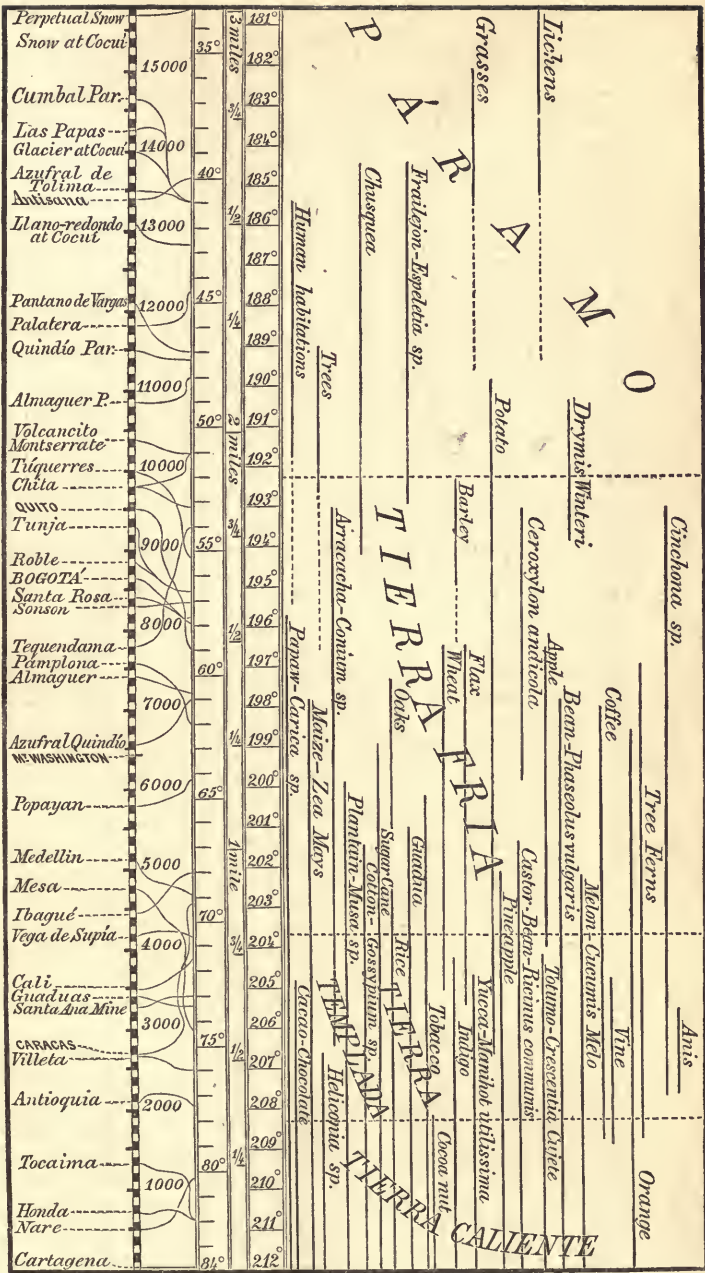 Perpetual Snow
Snow at Cocuí
Cumbal Par.
Las Papas
Glacier at Cocuí
Azufral de
Tolima
Antisana
Llano-redondo
at Cocuí
Pantano de Vargas
Palatera
Quindío Par.
Almaguer P.
Volcancito
Montserrate
Túquerres
Chita
QUITO
Tunja
Roble
BOGOTÁ
Santa Rosa
Sonson
Tequendama
Pamplona
Almaguer
Azufral Quindío
Mt. WASHINGTON
Popayan
Medellin
Mesa
Ibagué
Vega de Supía
Cali
Guaduas
Santa Ana Mine
CARACAS
Villeta
Antioquia
Tocaima
Honda
Nare
Cartagena
15000
14000
13000
12000
11000
10000
9000
8000
7000
6000
5000
4000
3000
2000
1000
35°
40°
45°
50°
55°
60°
65°
70°
75°
80°
84°
3 miles
3/4
1/2
1/4
2 miles
3/4
1/2
1/4
1 mile
3/4
1/2
1/4
181°
182°
183°
184°
185°
186°
187°
188°
189°
190°
191°
192°
193°
194°
195°
196°
197°
198°
199°
200°
201°
202°
203°
204°
205°
206°
207°
208°
209°
210°
211°
212°
PÁRAMO
Lichens
Grasses
Frailejon-Espeletia sp.
Chusquea
Human habitations
Trees
Potato
Drymis Winteri
TIERRA FRIA
Cinchona sp.
Barley
Ceroxylon andicola
Arracacha-Conium sp.
Apple
Flax
Wheat
Oaks
Papaw-Carica sp.
Maize-Zea Mays
Bean-Phaseolus vulgaris
Coffee
Tree Ferns
Plantain-Musa sp.
Cotton-Gossypium sp.
Sugar Cane
Guadua
Rice
Castor-Bean-Ricinus communis
Pineapple
Melon-Cucumis Melo
TIERRA
TEMPLADA
Cacao-Chocolate
Heliconia sp.
Tobacco
Indigo
Yucca-Manihot utilissima
Totumo-Crescentia Cujete
Vine
Anis
Cocoa nut
Orange
TIERRA CALIENTE